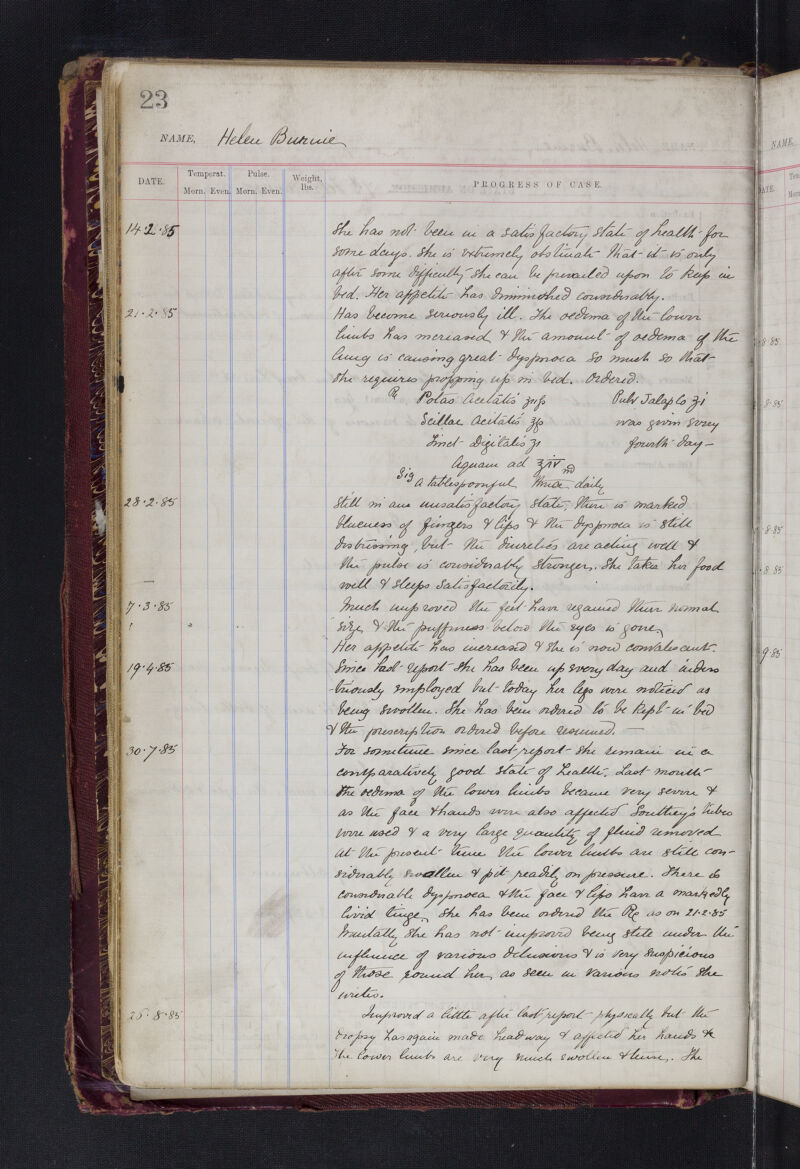 23
NAME, Helen Burnie
DATE. Temperat. Pulse. Weight, lbs. PROGRESS OF CASE.
Morn. Even. Morn. Even.
14.2.85 She has not been in a satisfactory state of health for
some days. She is extremely obstinate that it is only
after some difficulty she can be prevailed upon to keep in
bed. Her appetite has diminished considerably.
21.2.85 Has become seriously ill. The oedema of the lower
limbs has increased & the amount of oedema of the
lung is causing great dyspnoea so much so that
she requires propping up in bed. Ordered.
℞ Potas Acetatis Pulv Jalap Co ʒi
Scillae Acetatis was given every
Tinct Digitalis fourth day –
Aquam ad
Sig A tablespoonful thrice daily
28.2.85 Still in an unsatisfactory state, there is marked
blueness of fingers & lips & the dyspnoea is still
distressing, but the diuretics are acting well &
the pulse is considerably stronger. She takes her food
well & sleeps satisfactorily.
7.3.85 Much improved the feet have regained their normal
size, & the puffiness below the eyes is gone,
Her appetite has increased & she is now convalescent.
19.4.85 Since last report she has been up every day and indus
-triously employed but today her legs were noticed as
being swollen. She has been ordered to be kept in bed
& the prescription ordered before resumed. —
30.7.85 For sometime since last report she remain in a
comparatively good state of health. Last month
the oedema of the lower limbs became very severe &
as the face & hands were also affected Southey's tubes
were used & a very large quantity of fluid removed
At the present time the lower limbs are still con-
siderably swollen & pit readily on pressure. There is
considerable dyspnoea & the face & lips have a markedly
livid tinge, She has been ordered the ℞ as on 21.2.85
Mentally she has not improved being still under the
influence of various delusions & is very suspicious
of those round her, as seen in various notes she
writes.
25.8.85 Improved a little after last report physically but the
dropsy has again made headway & affected her hands &
the lower limbs are very much swollen & tense. The
NAME,